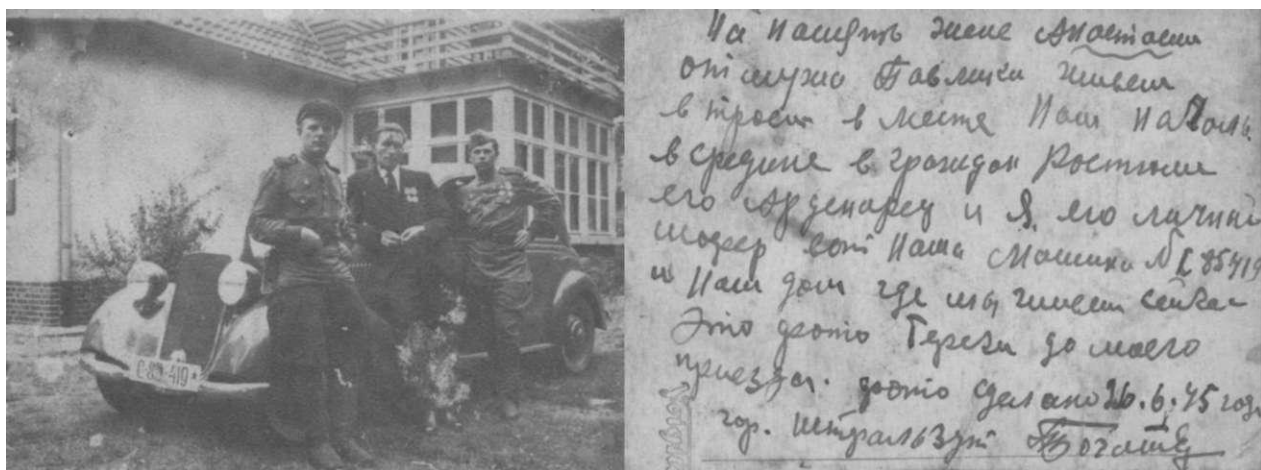 На память жене Анастасии
от мужа Павлика живем
в троем в месте Наш
в средине в граждан костюме
его Арденарец и Я его личный
шофер вот Наша Машина №
и Наш дом где мы живем сейчас
Это фото Береги до моего
приезда. фото сделано 26.6.45 года
гор. штральзунт
-419